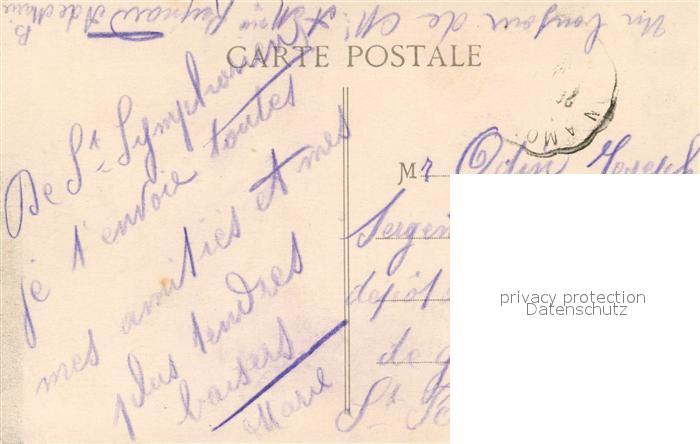 Un bonjour de Mr
CARTE POSTALE
De St Symphorien
je t'envoie toutes
mes amitiés et mes
plus tendres
baisers
Marie
Mr Odin Joseph
Sergen
dépôt
de g
St
privacy protection
Datenschutz